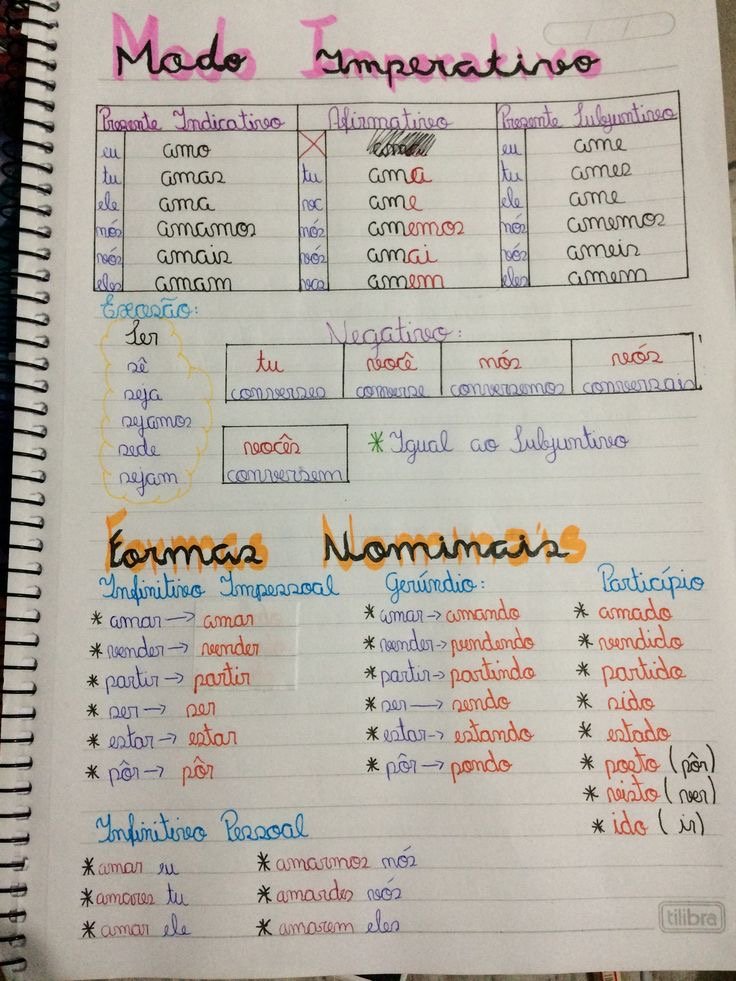 Modo Imperativo
Presente Indicativo Afirmativo Presente Subjuntivo
eu amo eu ame
tu amas tu ama tu ames
ele ama voc ame ele ame
nós amamos nós amemos nós amemos
vós amais vós amai vós ameis
eles amam vocs amem eles amem
Excesão:
Ser
sê
seja
sejamos
sede
sejam
Negativo:
tu você nós vós
converses converse conversemos conversais
vocês
conversem
* Igual ao Subjuntivo
Formas Nominais
Infinitivo Impessoal Gerúndio: Particípio
* amar → amar * amar → amando * amado
* vender → vender * vender → vendendo * vendido
* partir → partir * partir → partindo * partido
* ser → ser * ser → sendo * sido
* estar → estar * estar → estando * estado
* pôr → pôr * pôr → pondo * posto (pôr)
* visto (ver)
* ido (ir)
Infinitivo Pessoal
* amar eu * amarmos nós
* amares tu * amardes vós
* amar ele * amarem eles
tilibra